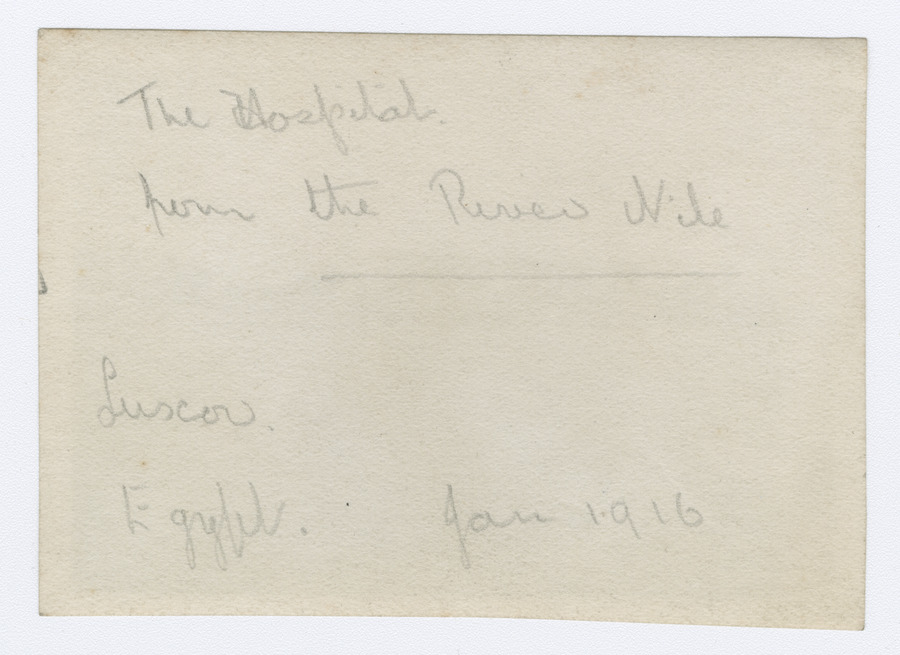 The Hospital.
from the River Nile
Luxor.
Egypt. Jan 1916